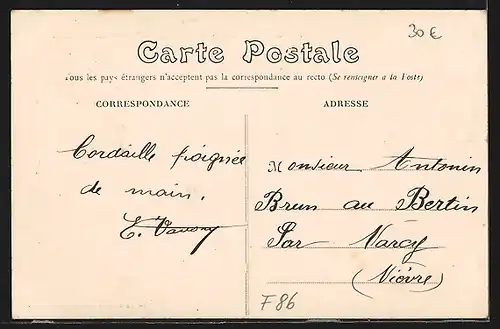 30 €
Carte Postale
Tous les pays étrangers n'acceptent pas la correspondance au recto (Se renseigner a la Poste)
CORRESPONDANCE
ADRESSE
Cordialle poignée
de main.
E.
Monsieur Antonin
Brun au Bertin
Par Narcy
(Nièvre)
F86